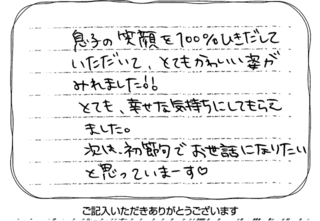 息子の笑顔を100%ひきだして
いただいて、とてもかわいい姿が
みれました!!
とても、幸せな気持ちにしてもらえ
ました。
次は、初節句でお世話になりたい
と思っていまーす♡
ご記入いただきありがとうございます